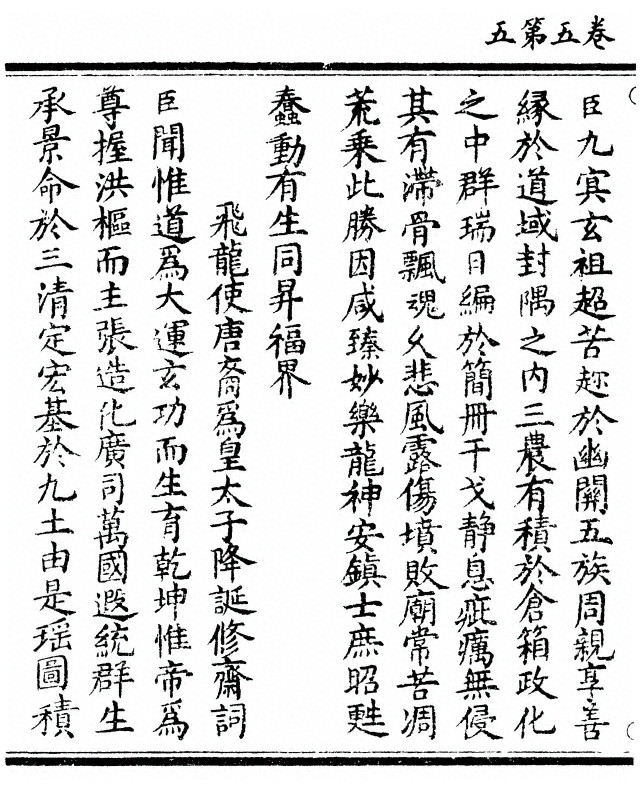 卷五第五
臣九㝠玄祖超苦趂於幽關五族周親享善
縁於道域封隅之内三農有積於倉箱政化
之中群瑞日編於簡冊干戈静息疵癘無侵
其有滯骨飄魂乆悲風露傷墳敗廟常苦凋
荒乗此勝因咸臻妙樂龍神安鎮士庶昭甦
蠢動有生同昇福界
飛龍使唐裔爲皇太子降誕修齋詞
臣聞惟道爲大運玄功而生育乾坤惟帝爲
尊握洪樞而主張造化廣司萬國遐統群生
承景命於三清定宏基於九土由是瑶圖積